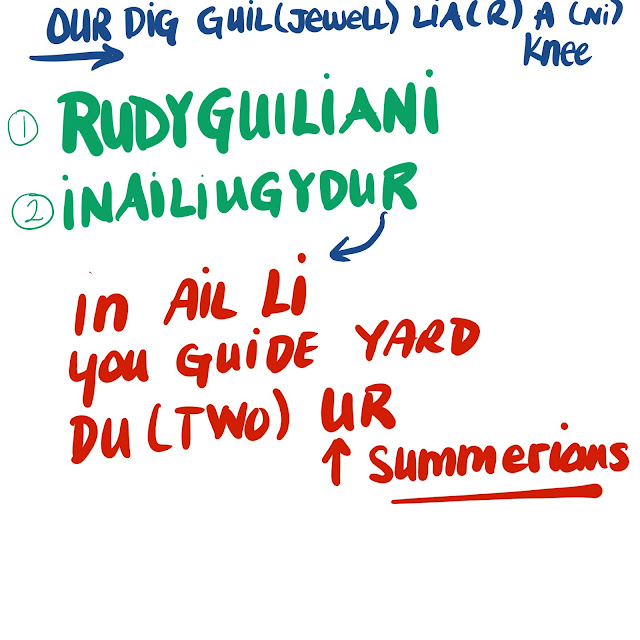 OUR DIG GUIL(Jewell) LiA(R) A (Ni)
Knee
① RUDYGUILIANI
② iNAiLiUGYDUR
in AiL Li
you GUiDE YARD
DU (TWO) UR
↑ Summerians